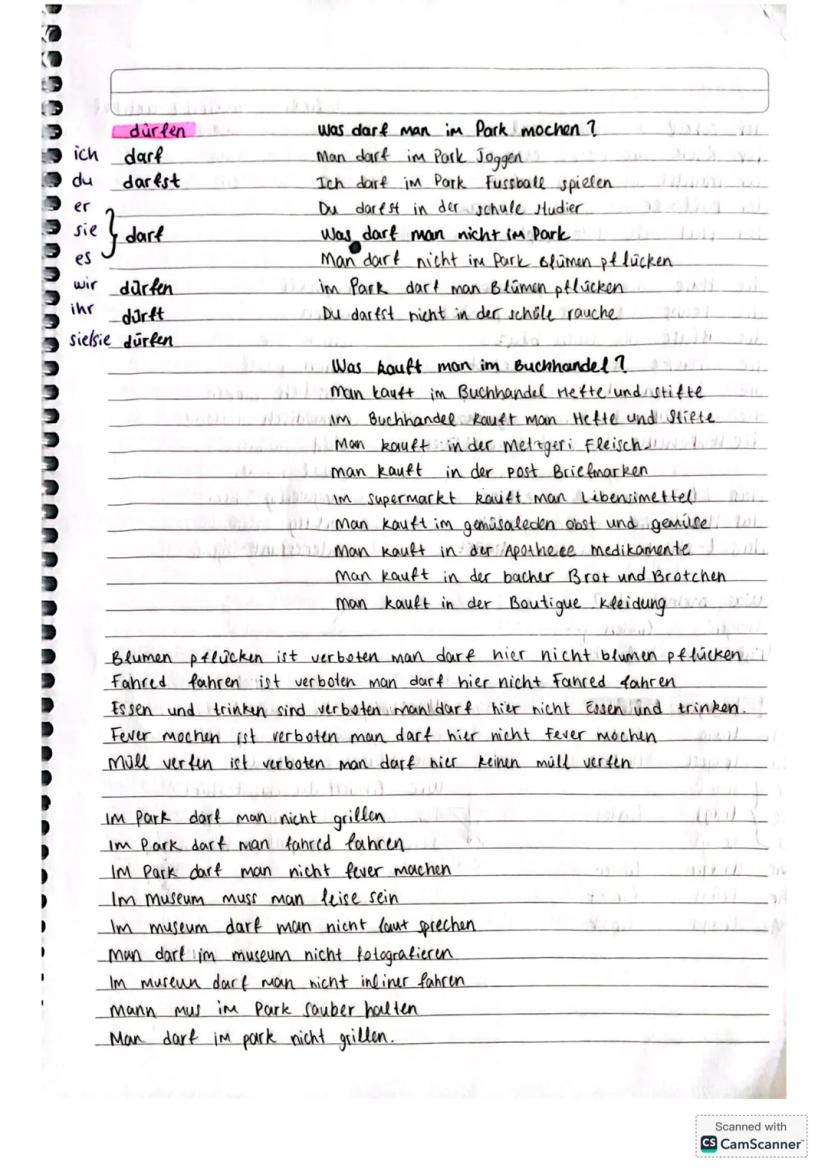 dürfen
ich darf
du darfst
er
sie } darf
es
wir dürfen
ihr dürft
sie/sie dürfen
Was darf man im Park mochen?
Man darf im Park Joggen
Ich darf im Park Fussball spielen
Du darfst in der schule studier
Was darf man nicht im Park
Man darf nicht im Park Blümen pflücken
im Park darf man Blümen pflücken
Du darfst nicht in der schüle rauche
Was kauft man im Buchhandel?
Man kauft im Buchhandel Hefte und stifte
im Buchhandel kauft man Hefte und Stifte
Man kauft in der Metzgeri Fleisch
man kauft in der post Briefmarken
im supermarkt kauft man Libensimettel
man kauft im gemüsaleden obst und gemüse
Man kauft in der Apotheee medikamente
Man kauft in der bacher Brot und Brotchen
man kauft in der Boutigue kleidung
Blumen pflücken ist verboten man darf hier nicht blumen pflücken
Fahred fahren ist verboten man darf hier nicht Fahred fahren
Essen und trinken sind verboten man darf hier nicht Essen und trinken.
Fever mochen ist verboten man darf hier nicht fever mochen
Müll verfen ist verboten man darf hier keinen müll verfen
Im Park darf man nicht grillen
Im Park darf man fahred fahren
IM Park darf man nicht fever machen
Im museum muss man leise sein
Im museum darf man nicht laut sprechen
Man darf im museum nicht fotografieren
Im museun darf man nicht inliner fahren
mann mus im Park sauber halten
Man darf im park nicht grillen.
Scanned with
CS CamScanner